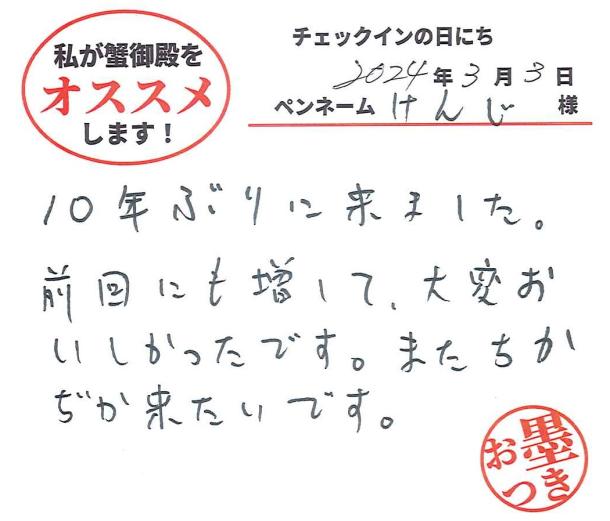 私が蟹御殿を
オススメ
します！
チェックインの日にち
2024年3月3日
ペンネーム けんじ 様
10年ぶりに来ました。
前回にも増して、大変お
いしかったです。またちか
ぢか来たいです。
お墨
つき